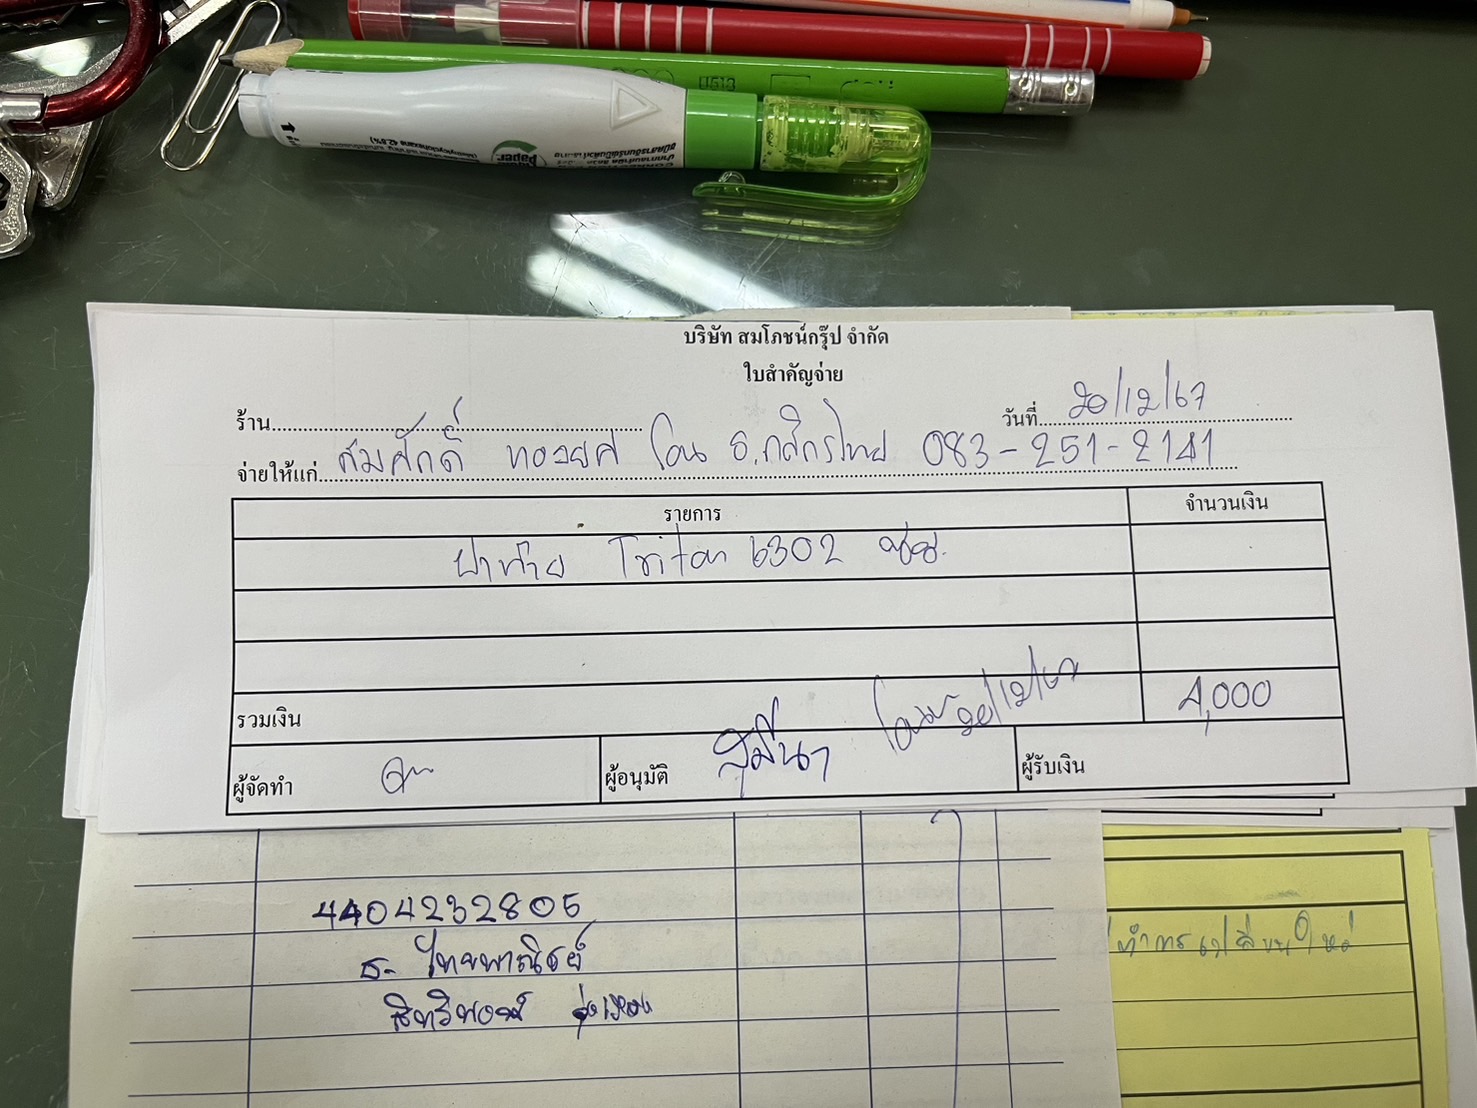 Paper
บริษัท สมโภชน์กรุ๊ป จำกัด
ใบสำคัญจ่าย
ร้าน
วันที่ 20/12/67
จ่ายให้แก่ สมศักดิ์ ทองยศ โอน ธ.กสิกรไทย 083-251-2141
รายการ จำนวนเงิน
ฝาท้าย Triton 6302
รวมเงิน 4,000
ผู้จัดทำ
ผู้อนุมัติ สุมีนา
ผู้รับเงิน
4404232805
ธ. ไทยพาณิชย์
สิทธิพงษ์
ทำการเปลี่ยนใหม่